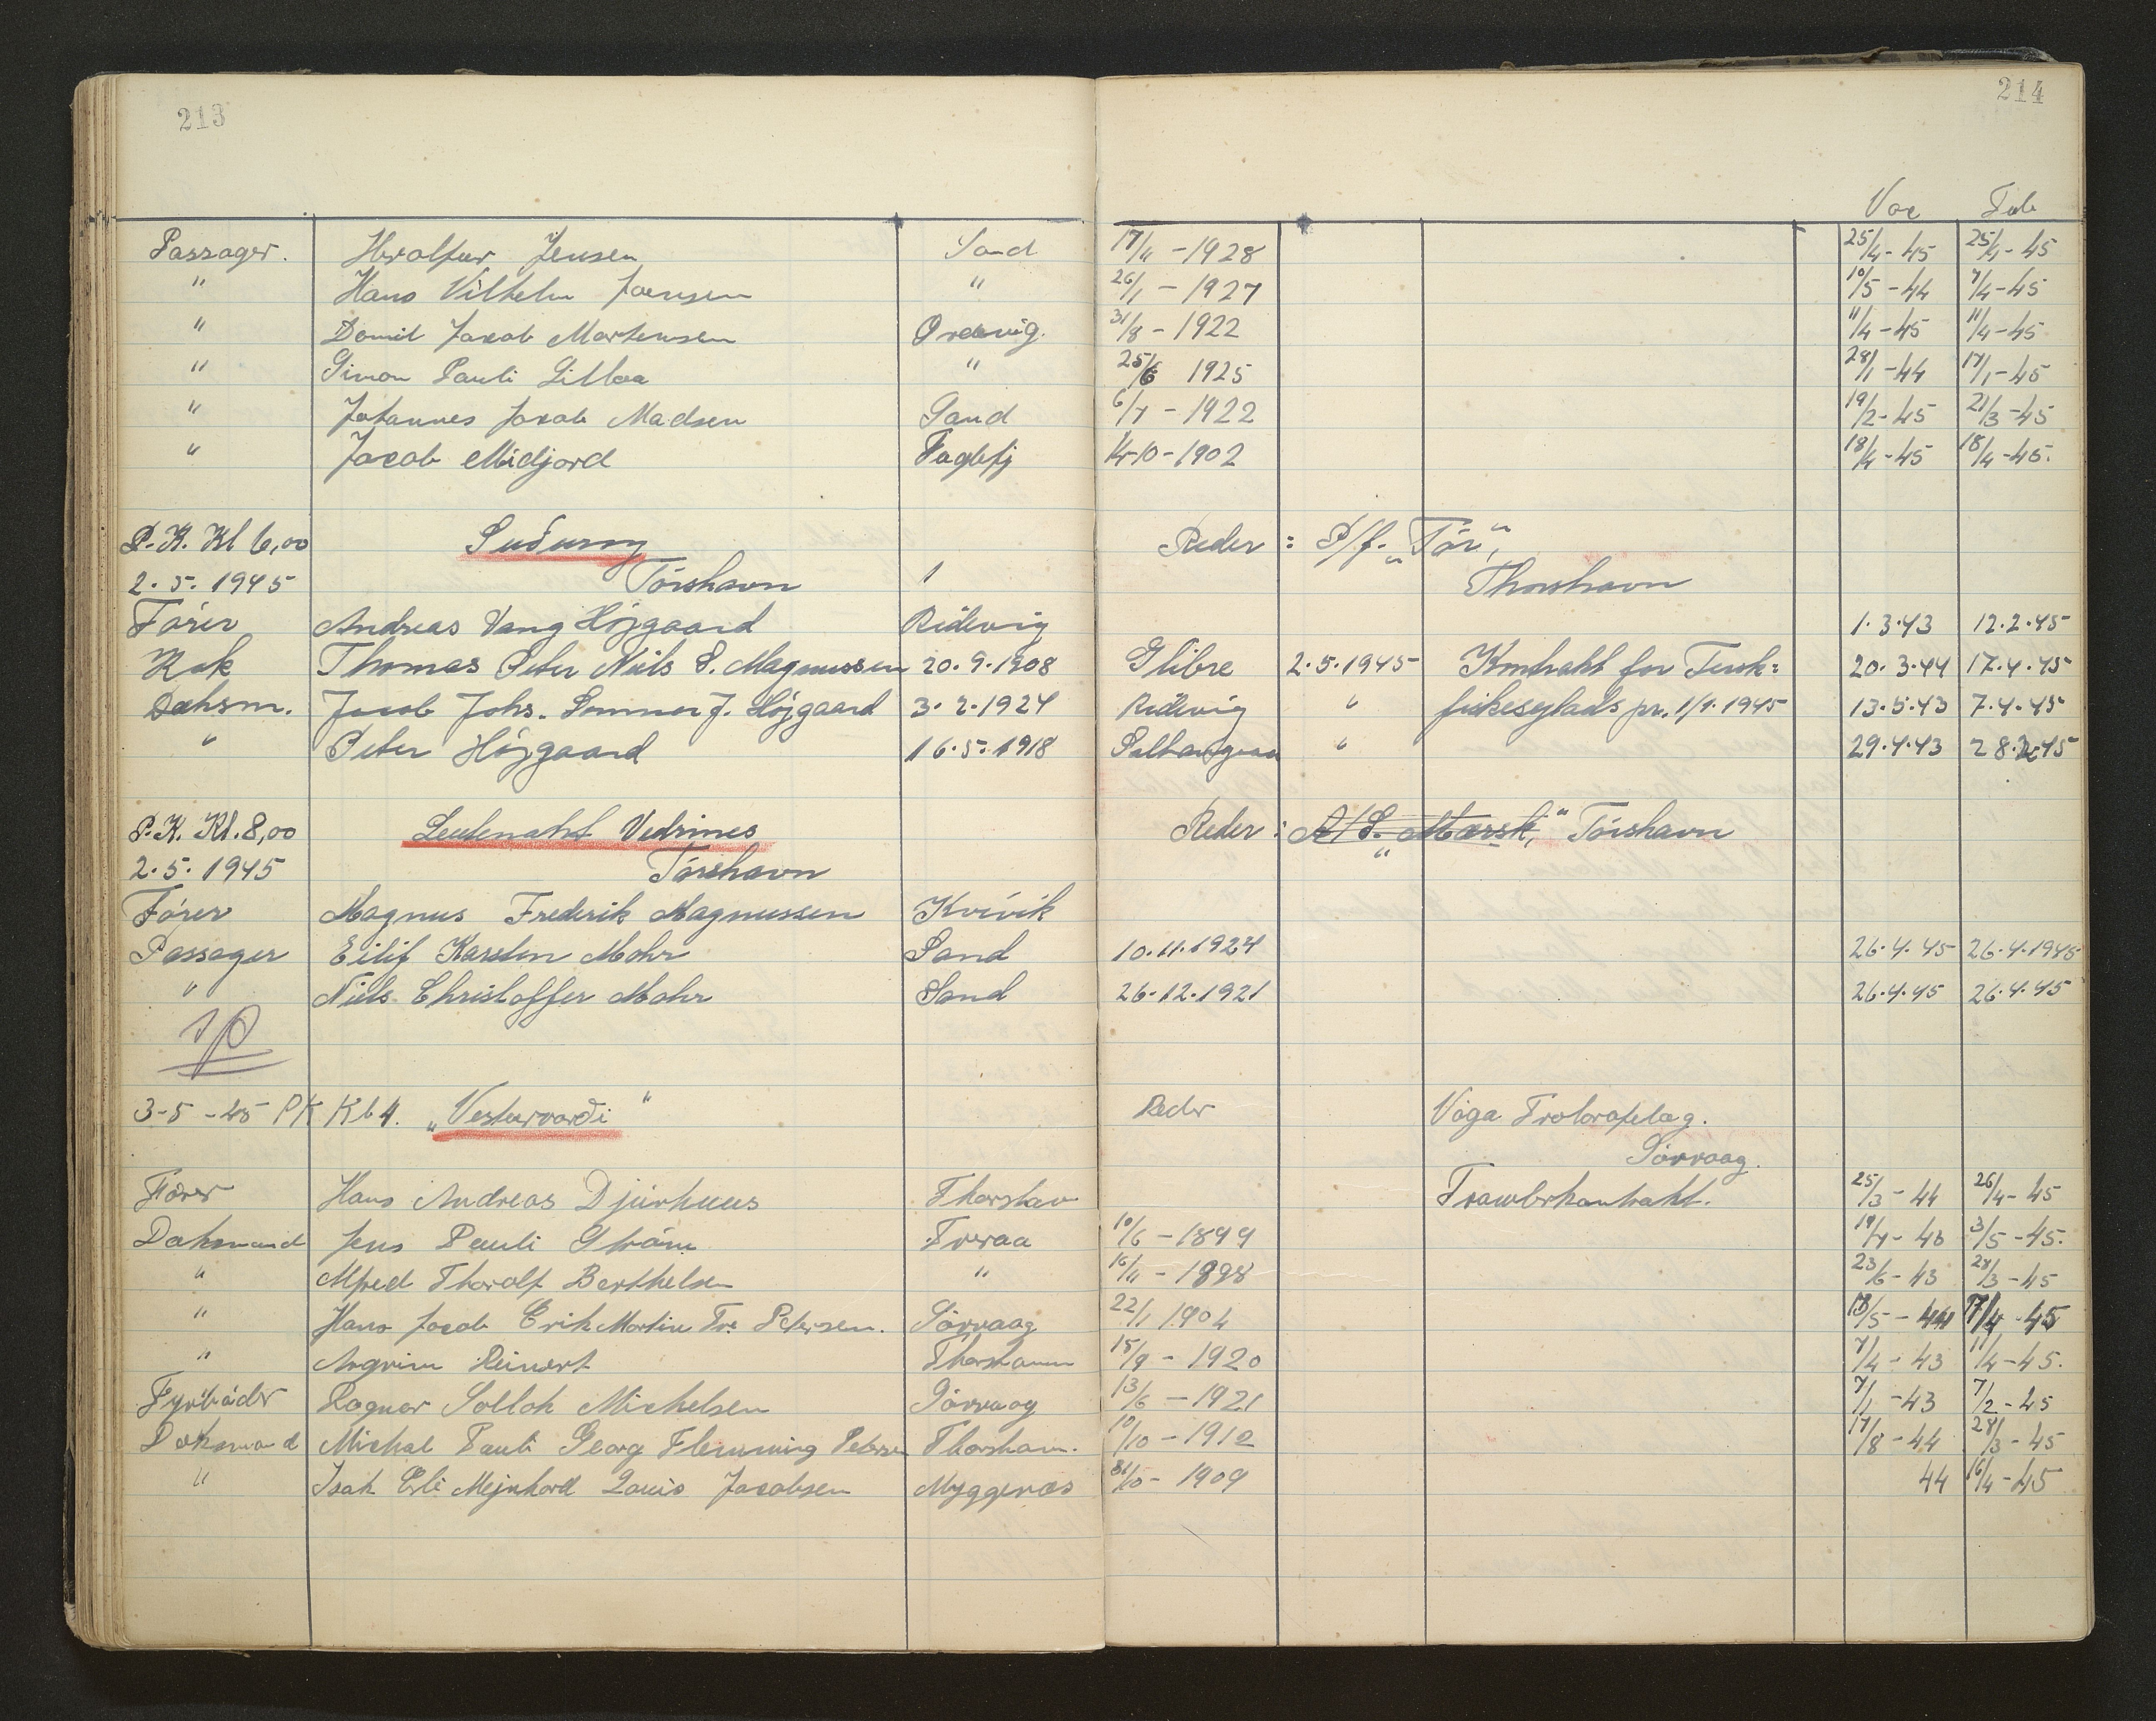 213
214
Vac Tub
Passager. Hrolfur Jensen Sand 17/11 - 1928 25/4 - 45 25/4 - 45
" Hans Vilhelm Joensen " 26/1 - 1927 10/5 - 44 7/4 - 45
" Daniel Jacob Mortensen Øravig. 31/8 - 1922 11/4 - 45 11/4 - 45
" Simon Pauli " 25/6 1925 28/1 - 44 17/1 - 45
" Johannes Jacob Madsen Sand 6/7 - 1922 19/2 - 45 21/3 - 45
" Jacob Midjord Faglefj 14-10-1902 18/4 - 45 18/4 - 45.
P.K. Kl 6,00 Suðuroy Reder : P/f. „Tór"
2.5.1945 Tórshavn Thorshavn
Fører Andreas Vang Højgaard Ridevig 1.3.43 12.2.45
Kok Thomas Peter Niels S. Magnussen 20.9.1908 Glibre 2.5.1945 Kontrakt for Fersk=
20.3.44 17.4.45
Dæksm. Jacob Johs. Sommer J. Højgaard 3.2.1924 Ridevig " fiskesejlads pr. 1/1.1945 13.5.43 7.4.45
" Peter Højgaard 16.5.1918 Saltangraa " 29.4.43 28.3.45
P.K. Kl. 8,00 Leutenaht Vedrines Reder : A/S. „Mærsk," Tórshavn
2.5.1945 Tórshavn
Fører Magnus Frederik Magnussen Kvívík
Passager Eilif Karsten Mohr Sand 10.11.1924 26.4.45 26.4.1945
" Niels Christoffer Mohr Sand 26.12.1921 26.4.45 26.4.45
3-5-45 PK Kl 4. „Vesturvarði" Reder Vága Trolarafelag.
Sørvaag.
Fører Hans Andreas Djurhuus Thorshavn Trawlerkontrakt. 25/3 - 44 26/4 - 45
Dæksmand Jens Pauli Strøm Freraa 10/6 - 1899 19/4 - 43 3/5 - 45.
" Alfred Thorolf Berthelsen " 16/11 - 1898 23/6 - 43 28/3 - 45
" Hans Jacob Erik Martin Fre Petersen. Sørvaag 22/1 1904 18/5 - 44 17/4 - 45
" Argrim Reinert Thorshavn 15/9 - 1920 7/4 - 43 11/4 - 45.
Fyrbøder Ragnar Solloh Michelsen Sørvaag 13/6 - 1921 7/1 - 43 7/2 - 45
Dæksmand Michal Pauli Georg Flemming Petersen Thorshavn. 10/10 - 1912 17/8 - 44 28/3 - 45
" Isak Erli Mejnhard Louis Jacobsen Myggenæs 31/10 - 1909 44 16/4 - 45